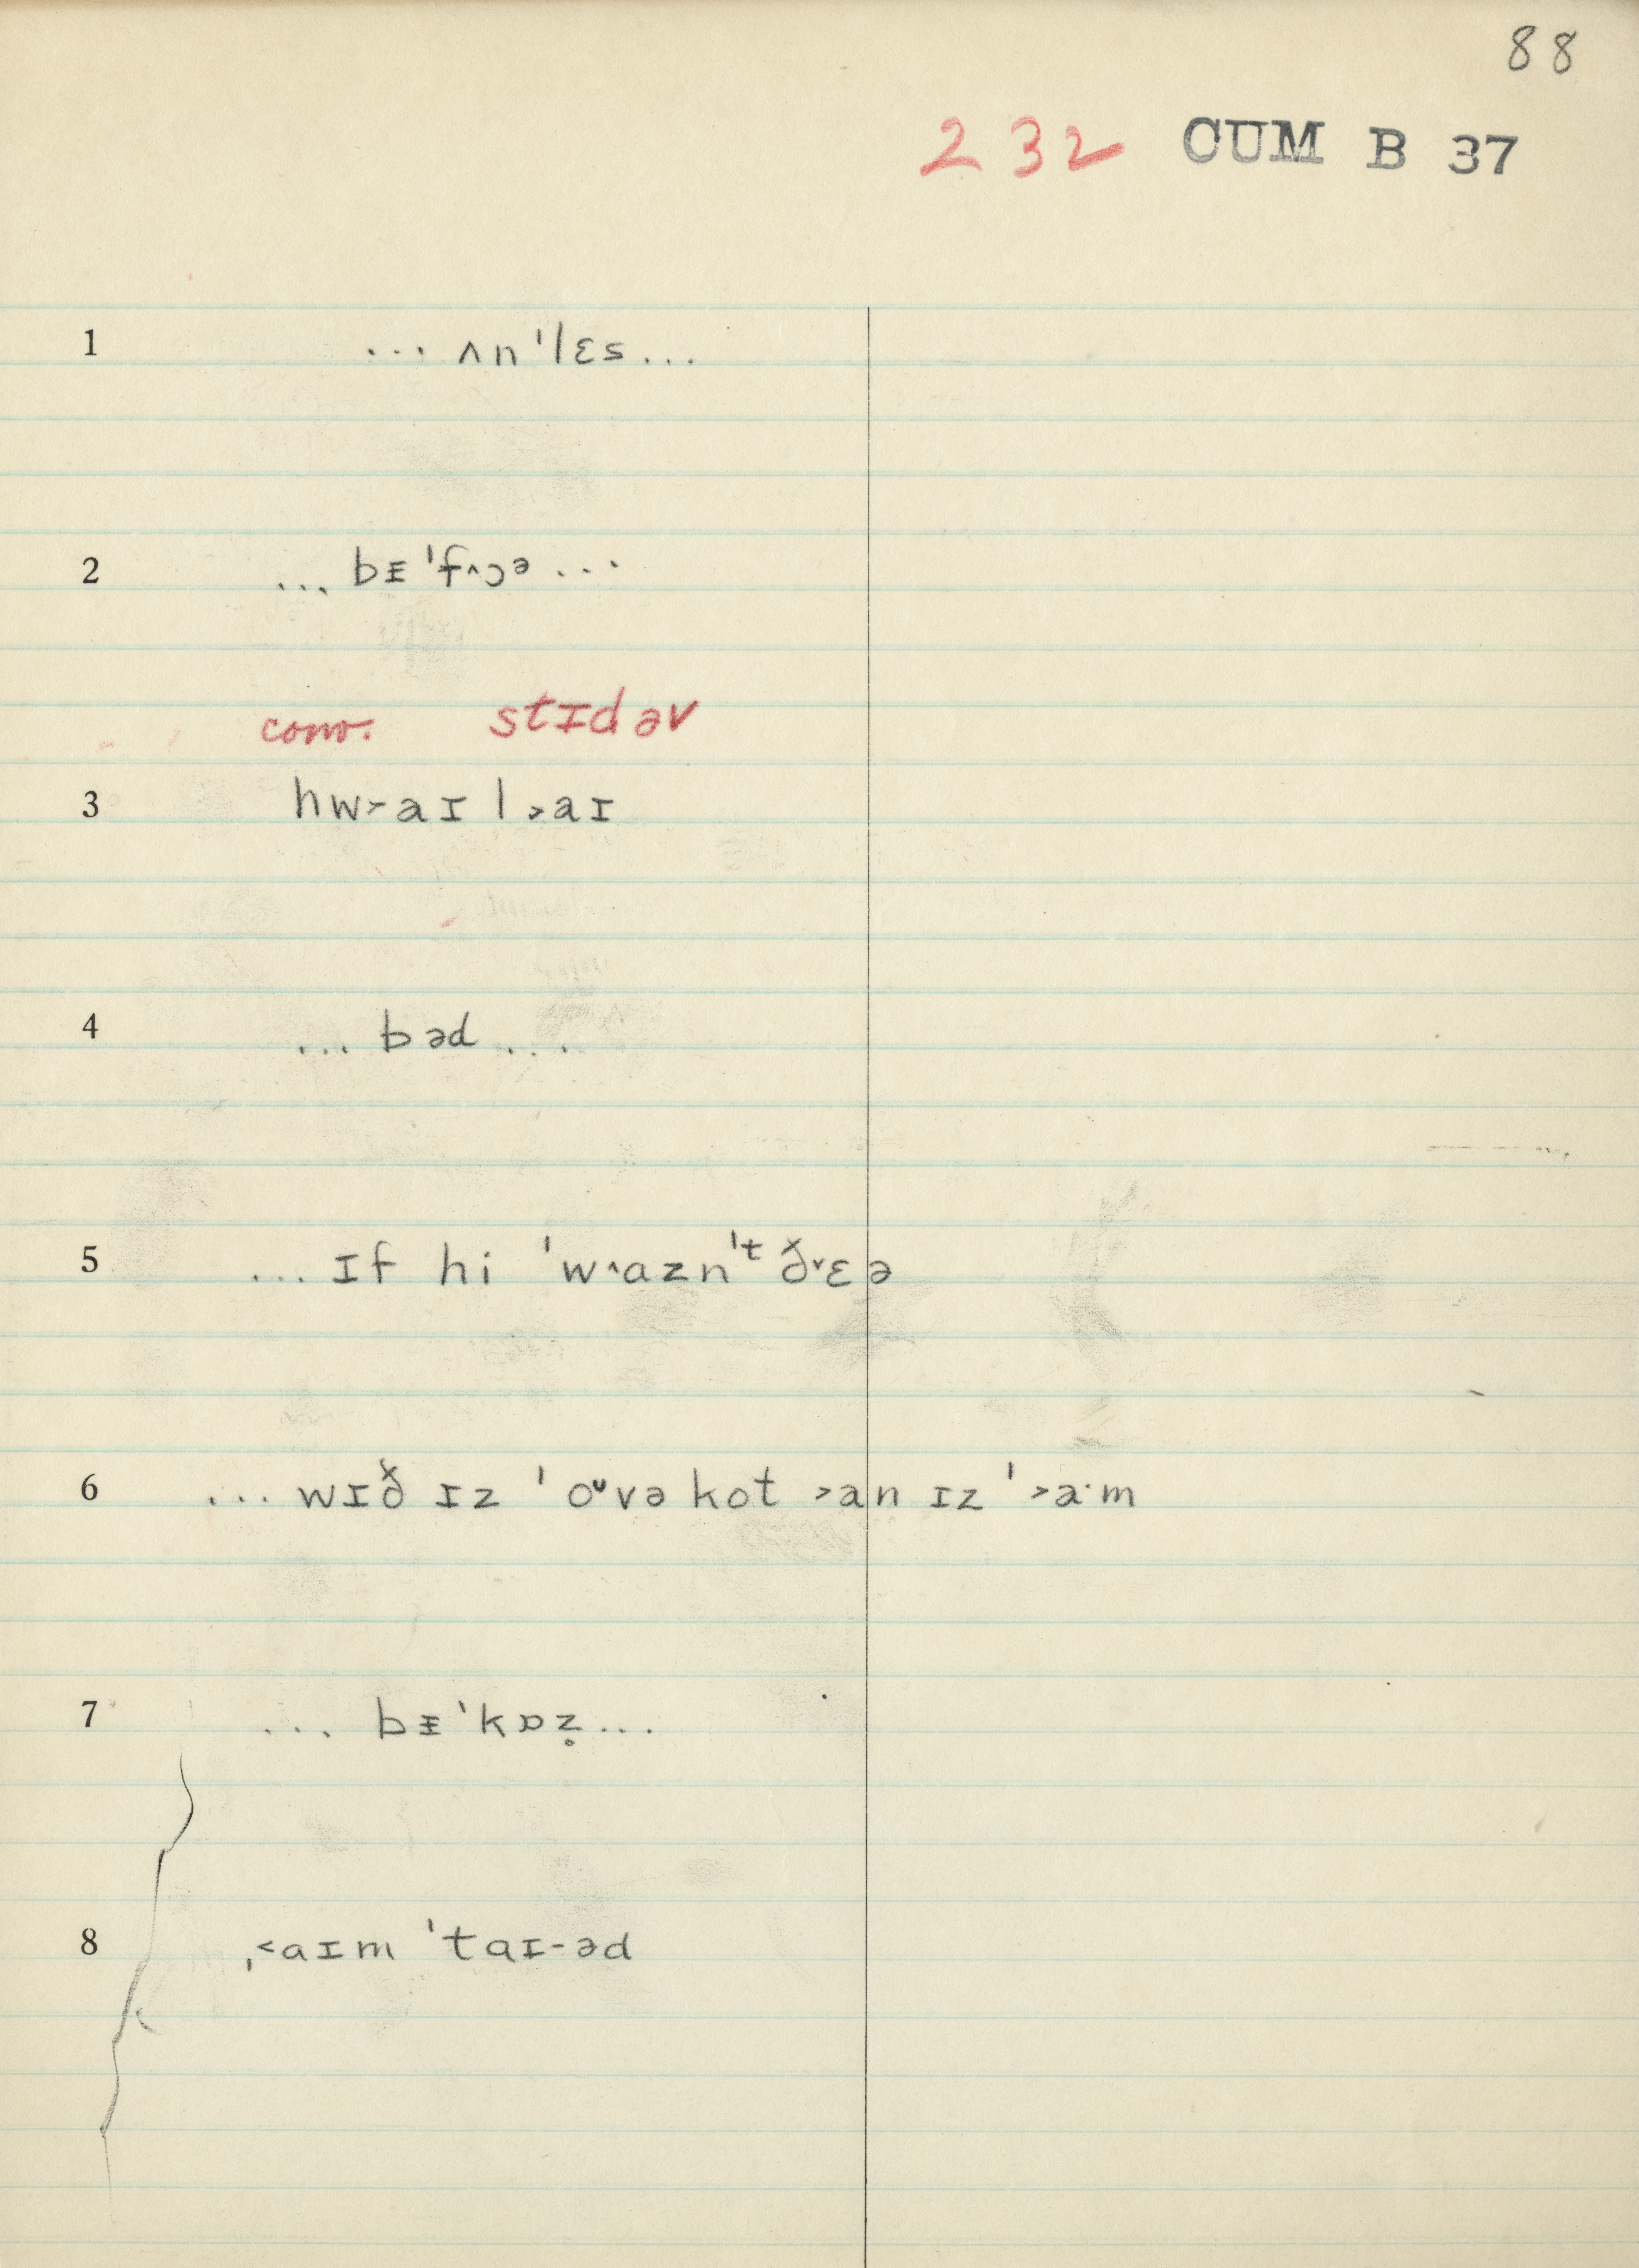 88
232 CUM B 37
1 ... ʌn'lɛs...
2 ... bᵻ'f˄ɔə ...
conv. stɪd əv
3 hw˃aɪl ˃aɪ
4 ... bəd ...
5 ... ɪf hi 'w˄azn't ð˅ɛə
6 ... wɪð ɪz 'oᴜvə kot ˃an ɪz '˃a·m
7 ... bᵻ'kɒz̥...
8 ˌ˂aɪm 'taɪ-əd